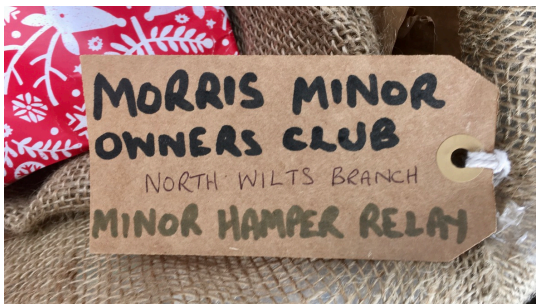 MORRIS MINOR
OWNERS CLUB
NORTH WILTS BRANCH
MINOR HAMPER RELAY